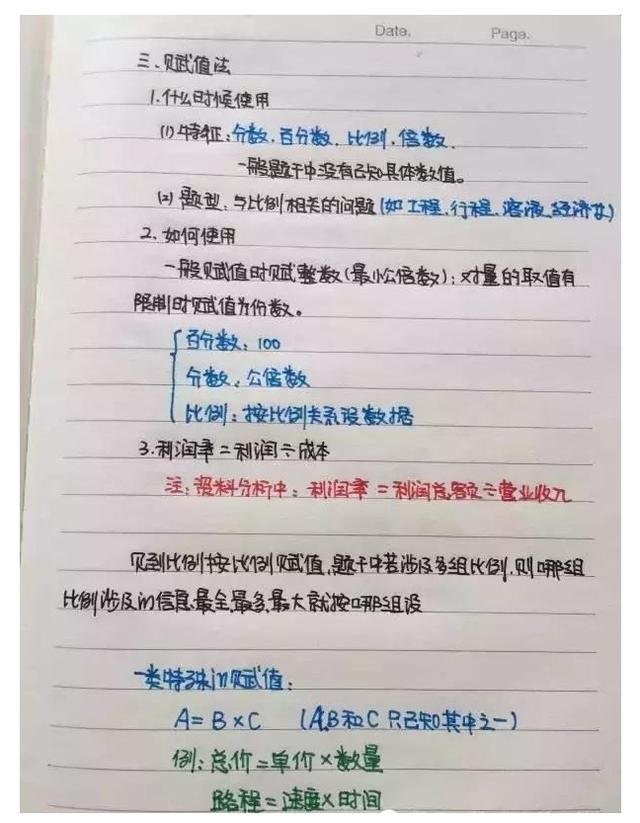 Date.
Page.
三、赋值法
1.什么时候使用
(1)特征:分数、百分数、比例、倍数、
一般题干中没有已知具体数值。
(2)题型:与比例相关的问题(如工程、行程、溶液、经济等)
2.如何使用
一般赋值时赋整数(最小公倍数);对量的取值有
限制时赋值为份数。
百分数:100
分数:公倍数
比例:按比例关系设数据
3.利润率=利润÷成本
注:资料分析中:利润率=利润总额÷营业收入
见到比例按比例赋值,题干中若涉及多组比例,则哪组
比例涉及的信息最全最多最大就按哪组设
一类特殊的赋值:
A=B×C (A、B和C只已知其中之一)
例:总价=单价×数量
路程=速度×时间